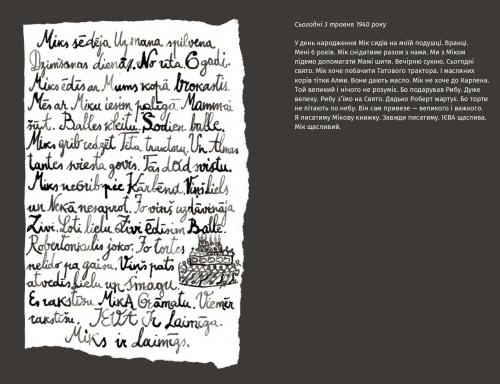 Miks sēdēja Uz mana spilvena
Dzimšanas dienā. No rīta. 6 gadi.
Miks ēdīs ar Mums kopā brokastis.
Mēs ar Miku iesim palīgā Mammai
šūt. Balles kleitu. Šodien balle.
Miks grib redzēt Tēta traktoru. Un Almas
tantes sviesta govis. Tās dod sviestu.
Miks negrib pie Kārbēna. Viņš liels
un Nekā nesaprot. To viņš uzdāvināja
Zivi. Ļoti lielu. Zivi ēdīsim Ballē.
Robertonkulis joko. To tortes
nelido pa gaisu. Viņš pats
atvedīs Lielu un Smagu.
Es rakstīšu MikA Grāmatu. Vienmēr
rakstīšu. IEVA Ir Laimīga.
Miks ir Laimīgs.
Сьогодні 3 травня 1940 року
У день народження Мік сидів на моїй подушці. Вранці.
Мені 6 років. Мік снідатиме разом з нами. Ми з Міком
підемо допомагати Мамі шити. Вечірню сукню. Сьогодні
свято. Мік хоче побачити Татового трактора. І масляних
корів тітки Алми. Вони дають масло. Мік не хоче до Карпена.
Той великий і нічого не розуміє. Бо подарував Рибу. Дуже
велику. Рибу з’їмо на Свято. Дядько Роберт жартує. Бо торти
не літають по небу. Він сам привезе — великого і важкого.
Я писатиму Мікову книжку. Завжди писатиму. ІЄВА щаслива.
Мік щасливий.